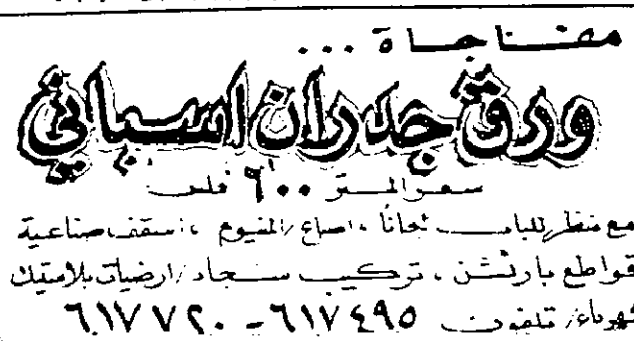 مفاجأة ...
ورق جدران اسباني
سعر المتر ٦٠٠ فلس
مع منظر للباب مجاناً ، اصباغ / المنيوم ، اسقف صناعية
قواطع بارتشن ، تركيب سجاد / ارضيات بلاستيك
كهرباء / تلفون ٦١٧٤٩٥ - ٦١٧٧٢٠